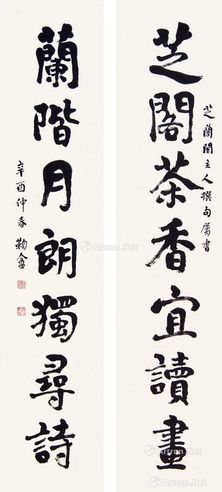 芝蘭閣主人撰句屬書
芝閣茶香宜讀畫
蘭階月朗獨尋詩
辛酉仲春